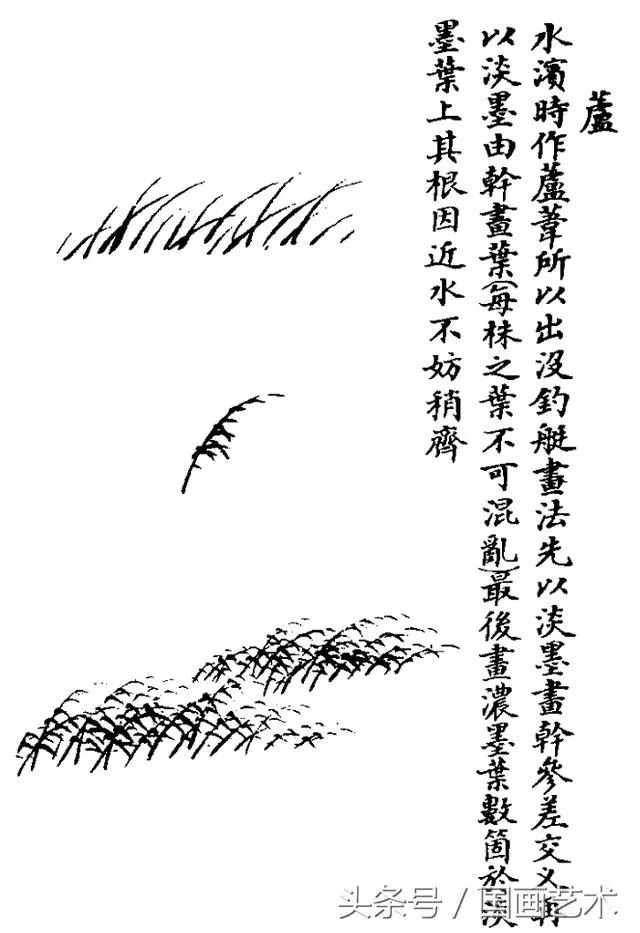 蘆
水濱時作蘆葦所以出沒釣艇畫法先以淡墨畫幹參差交叉再
以淡墨由幹畫葉(每株之葉不可混亂)最後畫濃墨葉數箇於淡
墨葉上其根因近水不妨稍齊
头条号 / 国画艺术